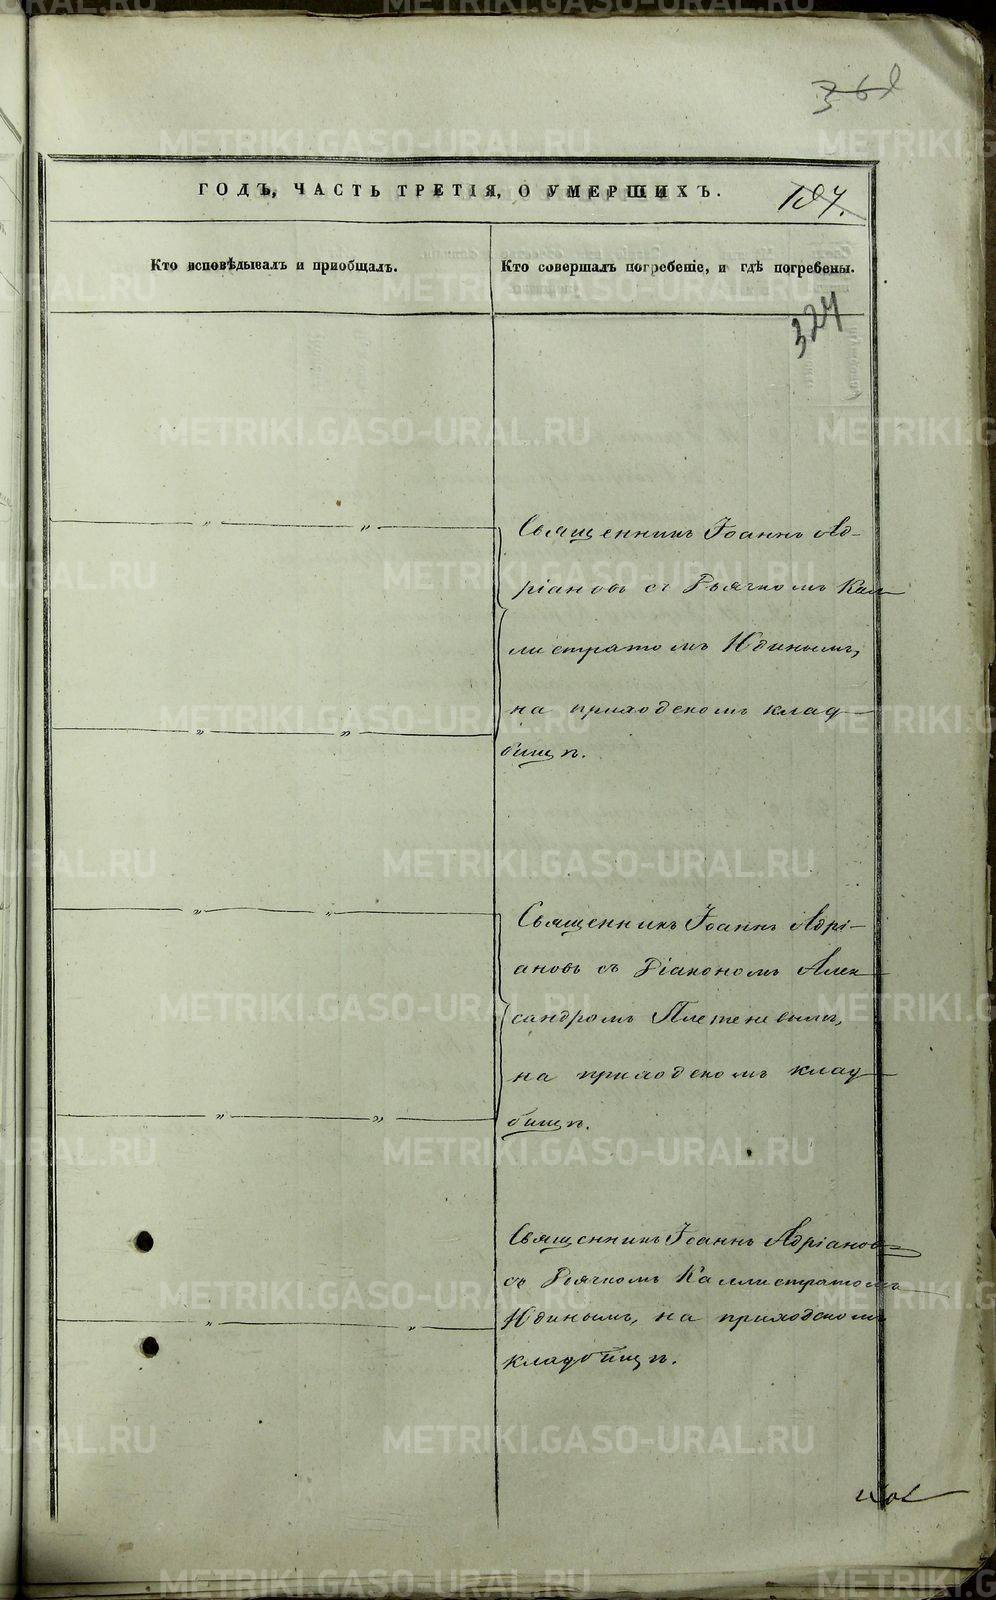 ГОДЪ, ЧАСТЬ ТРЕТІЯ, О УМЕРШИХЪ.
197.
Кто исповѣдывалъ и пріобщалъ.
Кто совершалъ погребеніе, и гдѣ погребены.
324
Священникъ Іоаннъ Ад-
ріановъ съ Дьячкомъ Кал-
листратомъ Юдинымъ,
на приходскомъ клад-
бищѣ.
Священникъ Іоаннъ Адрі-
ановъ съ Діакономъ Алек-
сандромъ Плетеневымъ,
на приходскомъ клад-
бищѣ.
Священникъ Іоаннъ Адріановъ
съ Дьячкомъ Каллистратомъ
Юдинымъ, на приходскомъ
кладбищѣ.
METRIKI.GASO-URAL.RU